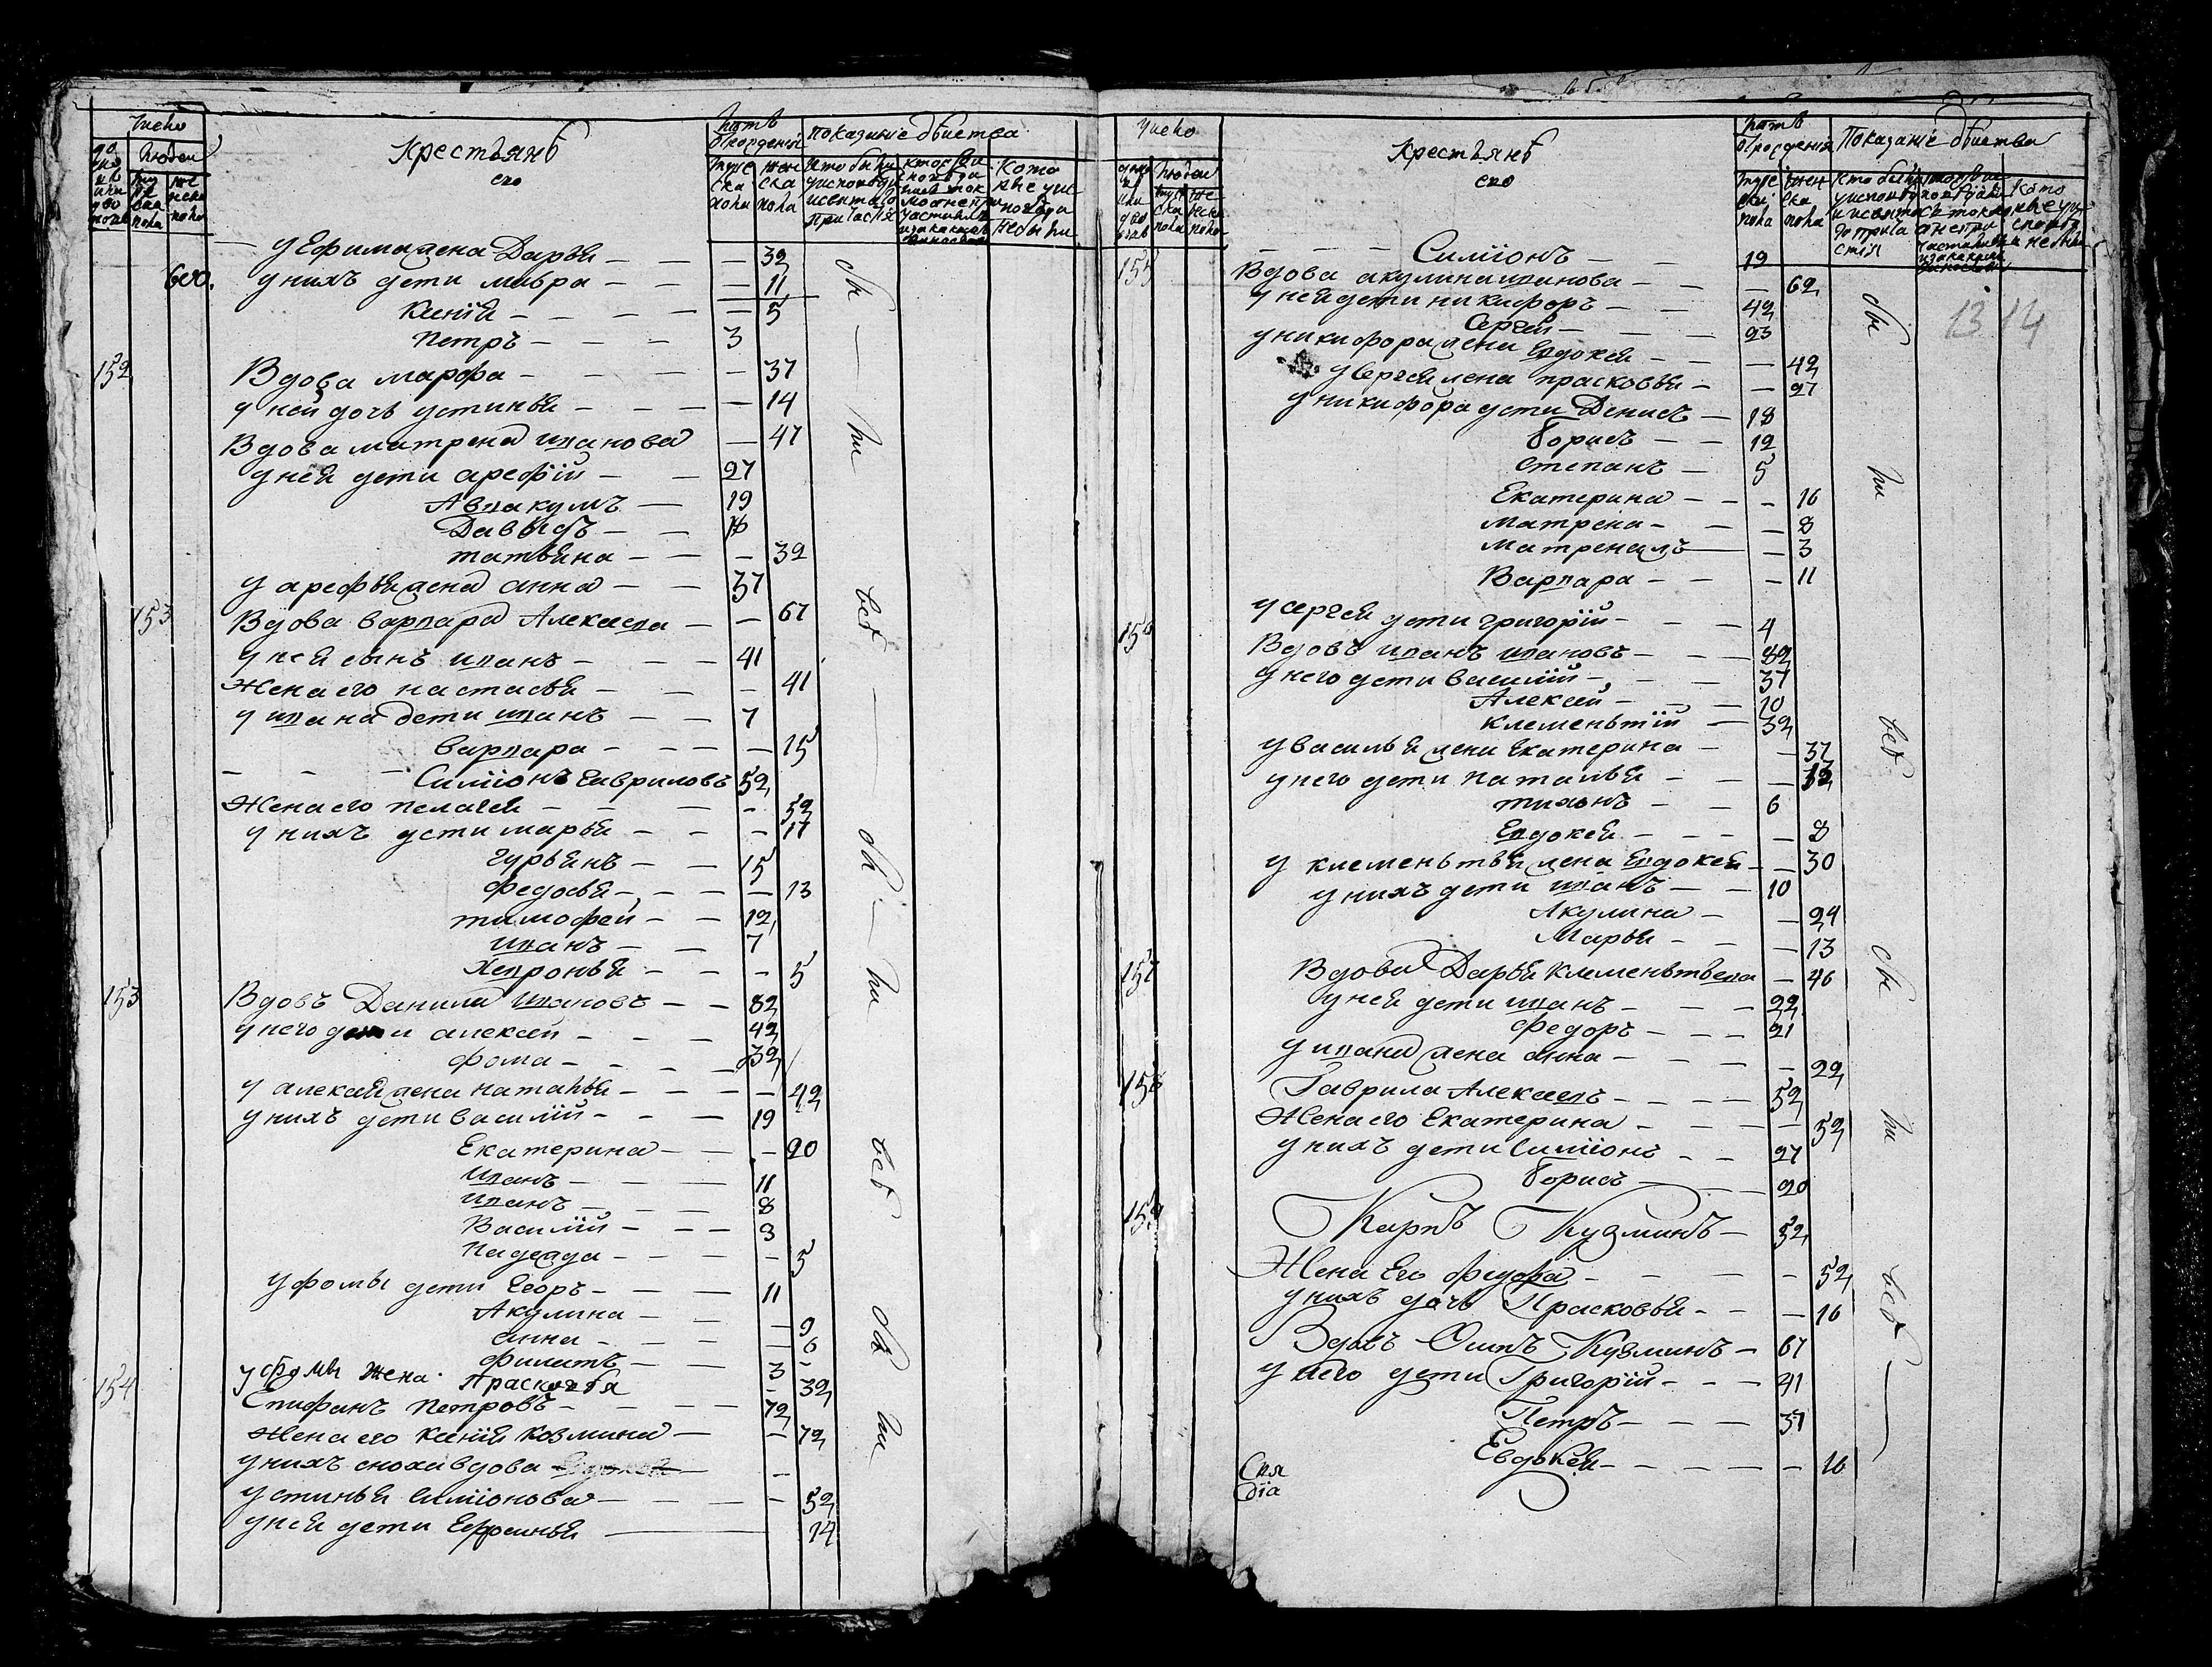 число
людей
Крестьянъ
ево
лѣтъ
отрождения
показание бытства
муже
ска
пола
жен
ска
пола
600.
у Ефима жена Дарья — — — 32
у нихъ дети мавра — — — 11
Ксния — — — — 5
Петръ — — — 3
152
Вдова марфа — — — 37
у ней дочь устинья — — — 14
Вдова матрена ивановa — 47
у ней дети арефий — — 27
Аввакумъ — 19
Давыдъ — — 18
татьяна — — — 32
у арефья жена анна — — 37
153
Вдова варвара Алексеева — — 67
у ней сынъ иванъ — — — 41
Жена его настасья — — — 41
у ивана дети иванъ — — 7
варвара — — — — 15
— — — Симионъ гавриловъ 52
Жена его пелагея — — — 52
у нихъ дети марья — — — 17
гурьянъ — — 15
федосья — — — 13
тимофей — — 12
иванъ — — 7
Хевронья — — — 5
153
Вдовъ Данила ивановъ — — 82
у него дети алексей — — — 42
фома — — — — 32
у алексея жена наталья — — — — 42
у нихъ дети василий — — — 19
Екатерина — — — 20
иванъ — — — 11
иванъ — — — 8
Василий — — — 3
надежда — — — — 5
у фомы дети Егоръ — — — 11
Акулина — — — 9
анна — — — — 6
филатъ — — 3 —
у фомы жена Прасковья — 32
154
Епифанъ петровъ — — — — 72
жена его Ксния козмина — — 72
у нихъ сноха вдова —
устинья симионова — — — — 52
у ней дети Ефросинья — 14
бы — ли всѣ — бы — ли всѣ бы ли
число
людей
Крестьянъ
ево
лѣтъ
отрождения
Показание бытства
муже
ска
пола
жен
ска
пола
13 14
— — — — Симионъ — — 19
155
Вдова акулина иванова — — — 62
у ней дети никифоръ — — 42
Сергей — — — 23
у никифора жена Евдокея — — — 42
у Сергея жена прасковья — — 27
у никифора дети Денисъ — 18
борисъ — — 12
степанъ — 5
Екатерина — — — 16
матрена — — — 8
матрена — 3
Варвара — — — 11
у сергея дети григорий — — — 4
156
Вдовъ иванъ ивановъ — — — 82
у него дети василий — — — 37
Алексей — — — 10
клементий — 32
у василья жена Екатерина — — 37
у него дети наталья — — —
тихонъ — — 6
Евдокея — — — — 8
у клеменьтья жена Евдокея — — 30
у нихъ дети иванъ — — 10
Акулина — — 24
Марья — — — 13
157
Вдова Дарья клеменьтьева — 46
у ней дети иванъ — — — 22
федоръ — — — 21
у ивана жена анна — — — — 22
158
Гаврила Алексеевъ — — — — 52
Жена его Екатерина — — — — 52
у нихъ дети Симионъ — — 27
борисъ — — 20
159
Карпъ Кузминъ — 52
Жена Ево федора — — — — — 52
у нихъ дочь Прасковья — — — 16
Вдовъ Осипъ Кузминъ — 67
у него дети Григорий — — — 41
Петръ — — — 37
Евдокея — — — — — 16
бы ли всѣ бы ли всѣ —